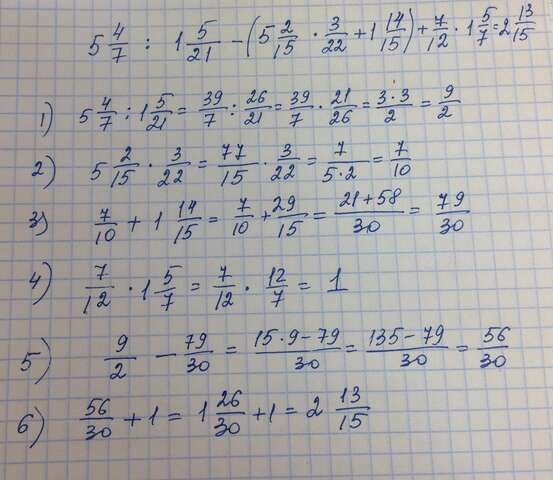 5 4/7 : 1 5/21 - (5 2/15 · 3/22 + 1 14/15) + 7/12 · 1 5/7 = 2 13/15
1) 5 4/7 : 1 5/21 = 39/7 : 26/21 = 39/7 · 21/26 = 3·3/2 = 9/2
2) 5 2/15 · 3/22 = 77/15 · 3/22 = 7/5·2 = 7/10
3) 7/10 + 1 14/15 = 7/10 + 29/15 = 21+58/30 = 79/30
4) 7/12 · 1 5/7 = 7/12 · 12/7 = 1
5) 9/2 - 79/30 = 15·9-79/30 = 135-79/30 = 56/30
6) 56/30 + 1 = 1 26/30 + 1 = 2 13/15